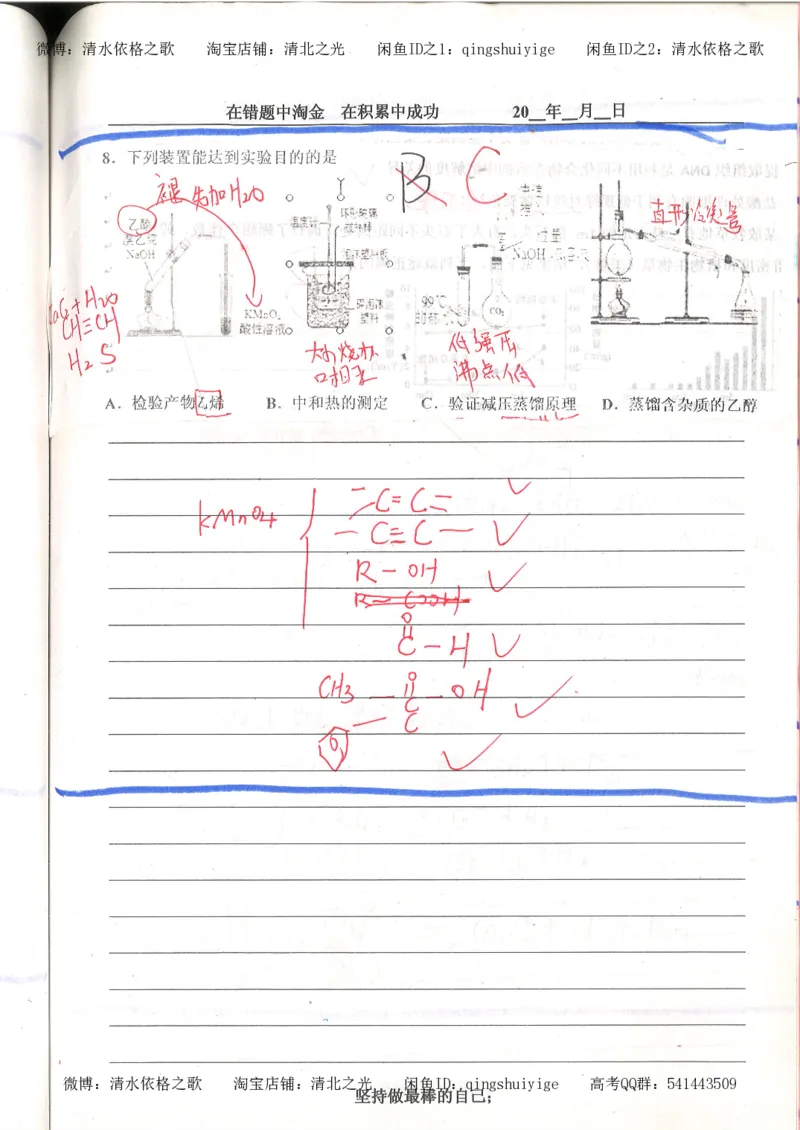 微博：清水依格之歌 淘宝店铺：清北之光 闲鱼ID之1：qingshuiyige 闲鱼ID之2：清水依格之歌
在错题中淘金 在积累中成功 20__年__月__日
8．下列装置能达到实验目的的是 B C
褪 先加H2O
乙醇
溴乙烷
NaOH
KMnO4
酸性溶液
CH≡CH
H2S
温度计
环形玻璃
搅拌棒
泡沫塑料板
大小烧杯
口相平
过量
CO2
低强压
沸点低
直形冷凝管
A．检验产物乙烯 B．中和热的测定 C．验证减压蒸馏原理 D．蒸馏含杂质的乙醇
KMnO4
C=C
—C≡C—
R—OH
R—COOH
O
C—H
CH3 — C — OH
O
C
微博：清水依格之歌 淘宝店铺：清北之光 闲鱼ID：qingshuiyige 高考QQ群：541443509
坚持做最棒的自己；